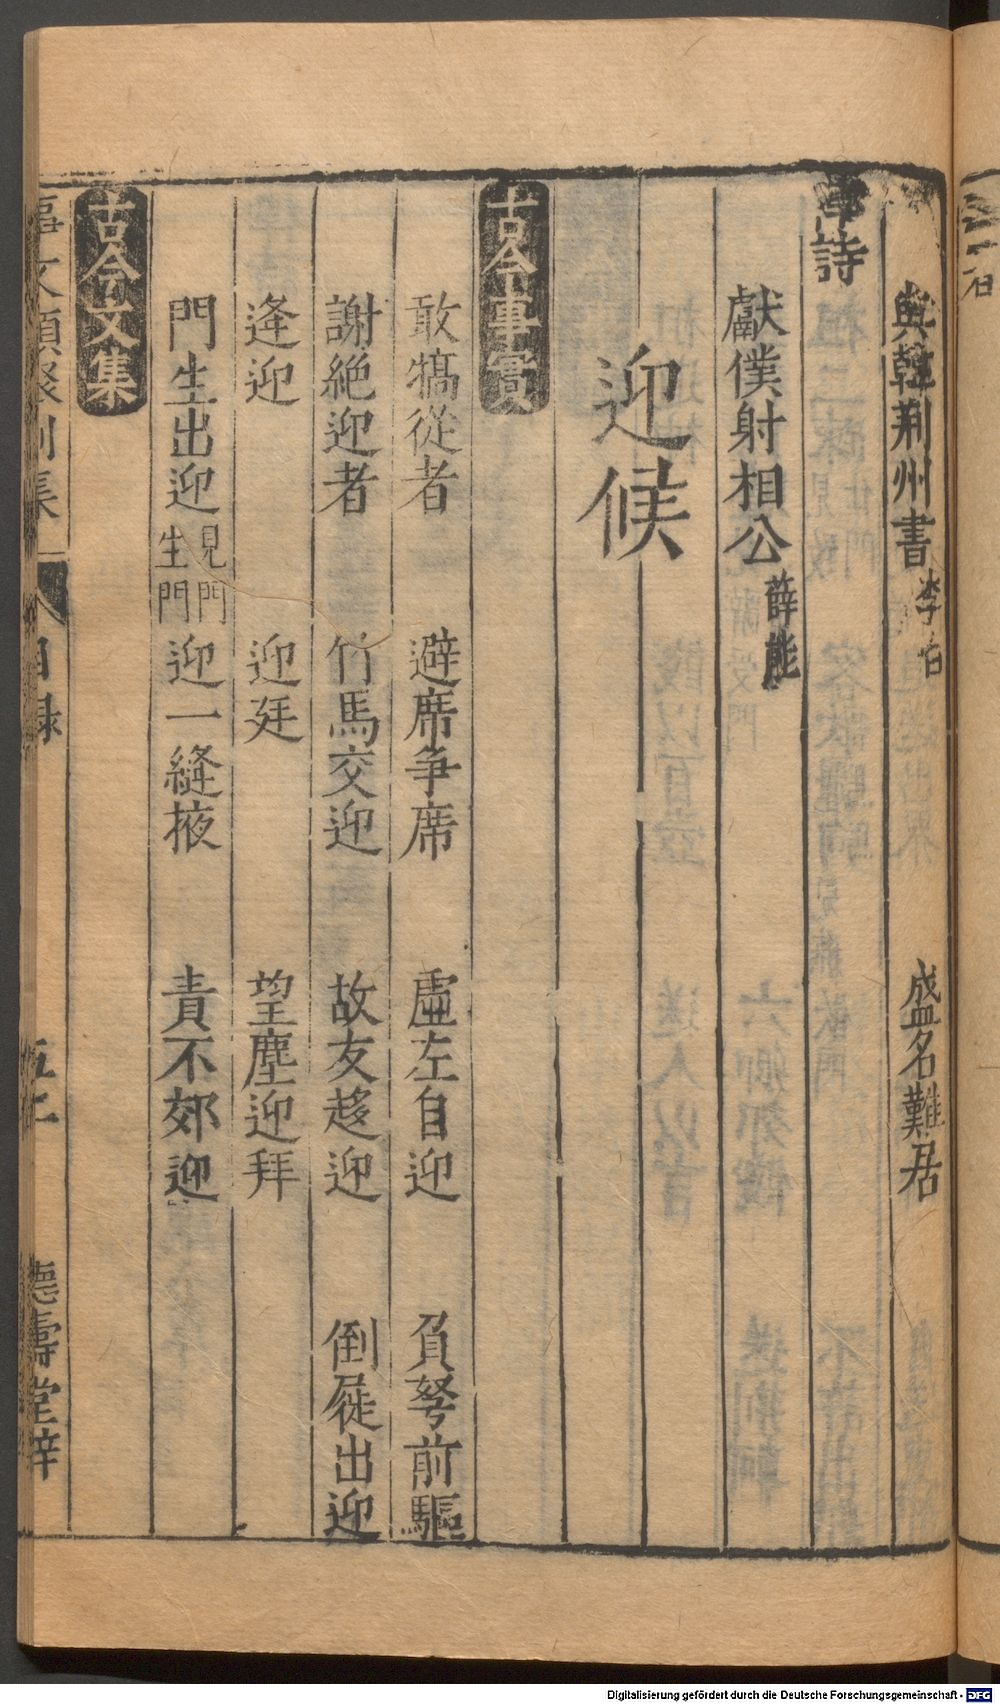 與韓荆州書 李白 盛名難居
律詩
獻僕射相公 薛能
迎候
古今事實
敢犒從者 避席爭席 虛左自迎 負弩前驅
謝絶迎者 竹馬交迎 故友趍迎 倒屣出迎
逢迎 迎廷 望塵迎拜
門生出迎 見門生門 迎一縫掖 責不郊迎
古今文集
事文類聚別集 目録 五十 德壽堂梓
Digitalisierung gefördert durch die Deutsche Forschungsgemeinschaft - DFG